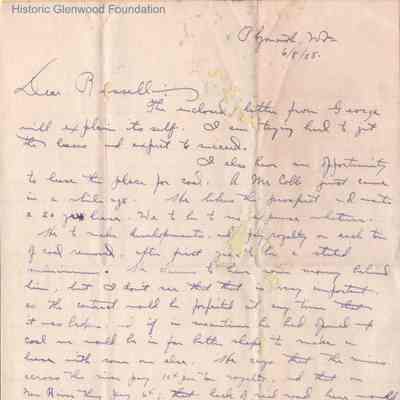 Historic Glenwood Foundation
Plymouth,
6/8/05.
Dear Russell:
The inclosed letter from George
will explain its self. I am trying hard to get
the leases and expect to succeed.
I also have an opportunity
to lease the place for coal. A Mr Cobb just came
in a while ago. He likes the prospect and wants
a 20 year lease. We to be to no expense whatever.
He to make developments, and pay royalty on each ton
of coal removed, after first year to be a stated
minimum. He claims to have some money behind
him, but I don't see that that is very important
as the contract would be forfeited at any time
it was broken, and if in meantime he had opened up
coal we would be in far better shape to make a
lease with some one else. He says that the mines
across the river pay 10¢ per ton royalty, and that on
they pay 6¢, that lack of rail road here would